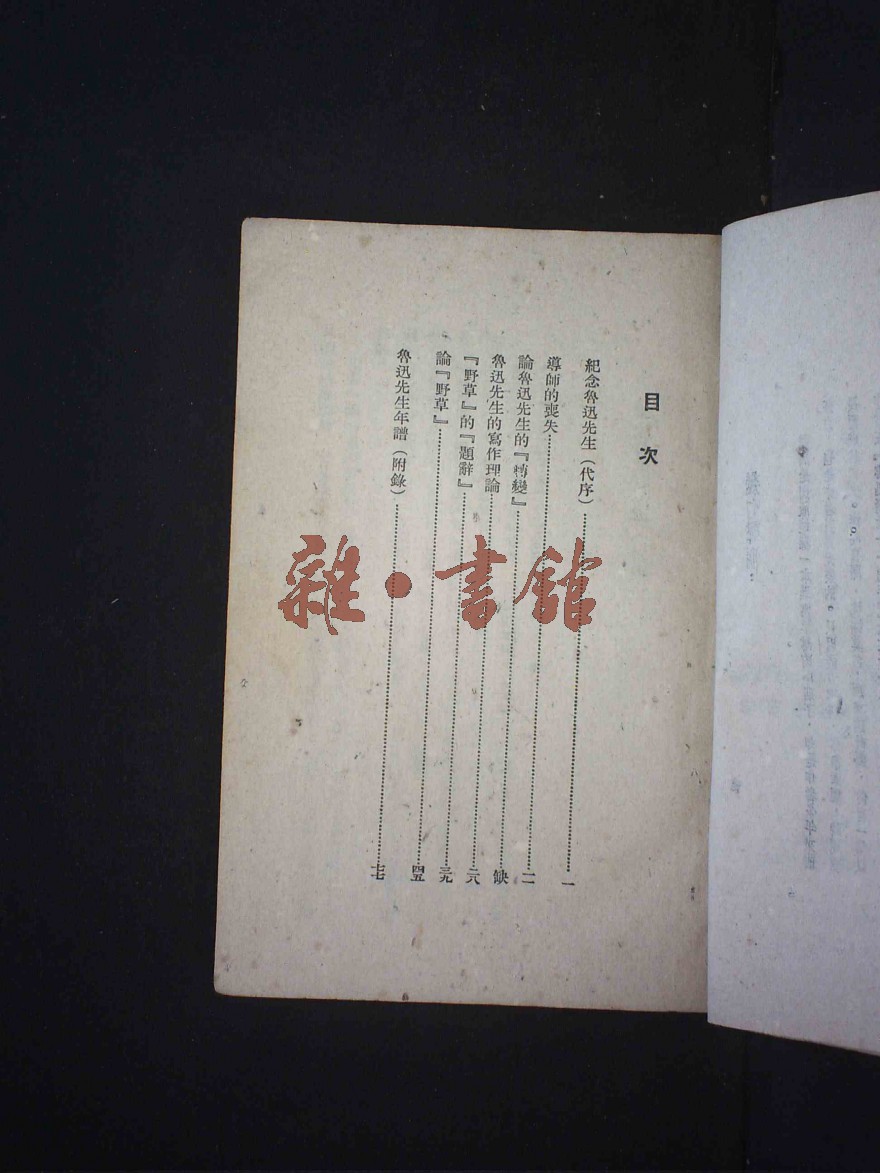 目次
紀念魯迅先生（代序）……一
導師的喪失……二
論魯迅先生的『轉變』……
魯迅先生的寫作理論……
『野草』的『題辭』……三九
論『野草』……四五
魯迅先生年譜（附錄）……七七
雜・書館